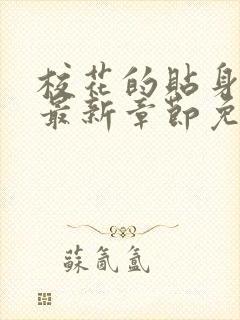 校花的貼身
最新章節免
蘇氤氳